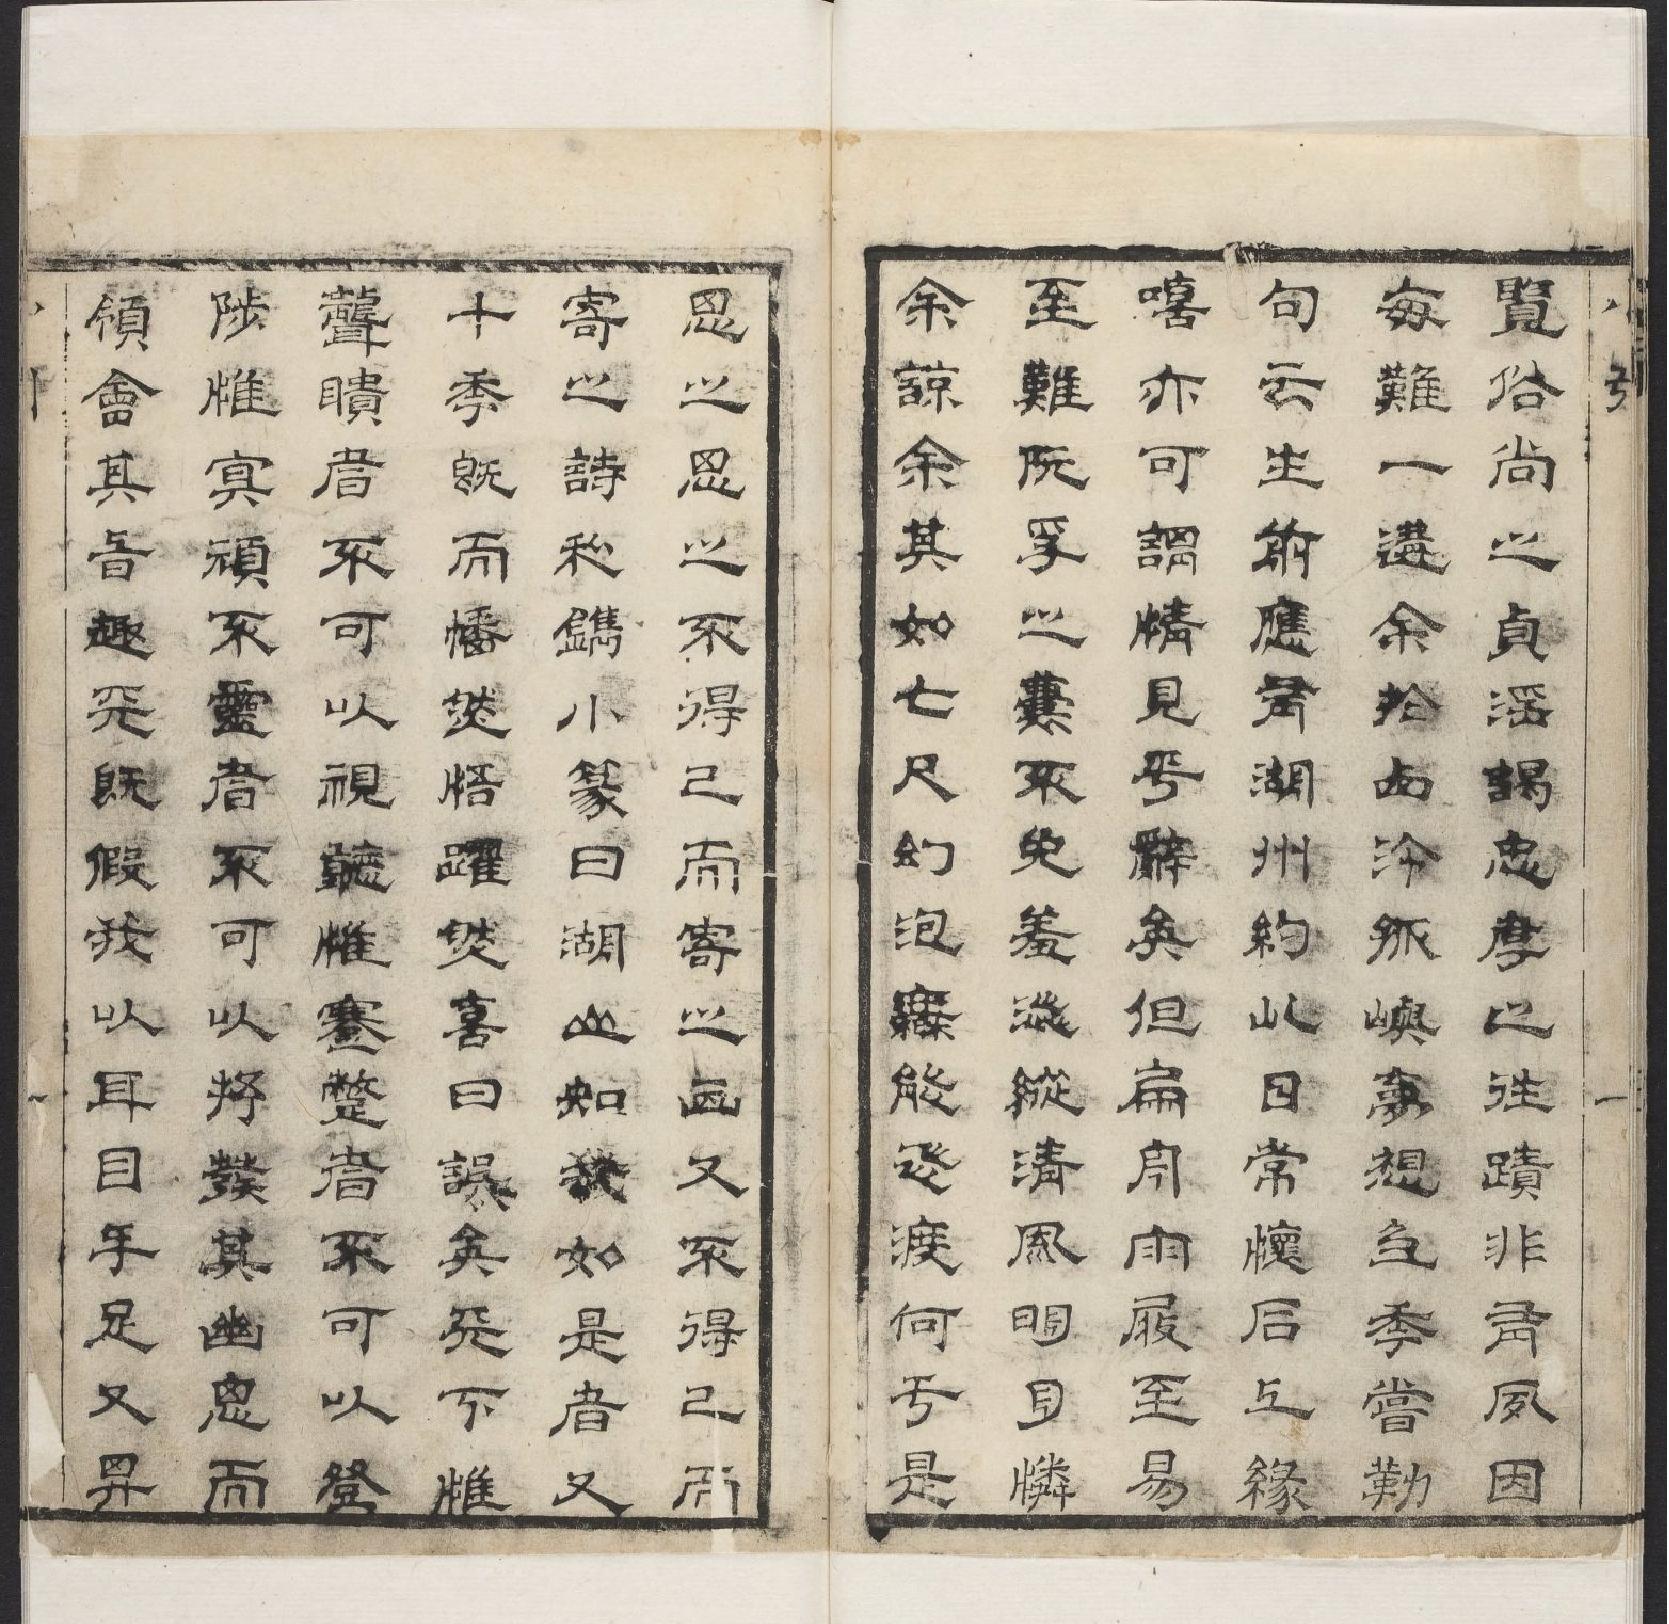 引 一
覽俗尚之貞淫謁忠孝之往蹟非有夙因
每難一遘余於西泠孤嶼夢想多季嘗勒
句云生前應有湖州約此日常懷后土緣
嘻亦可謂情見乎辭矣但扁舟雨屐至易
至難阮孚之囊不免羞澁縱淸風明月憐
余諒余其如七尺幻泡能飛渡何于是
思之思之不得已而寄之画又不得已而
寄之詩和鐫小篆曰湖山知我如是者又
十季既而幡然悟躍然喜曰誤矣天下惟
聾瞶者不可以視聽惟蹇躄者不可以登
陟惟冥頑不靈者不可以抒發其幽思而
領會其旨趣天既假我以耳目手足又畀